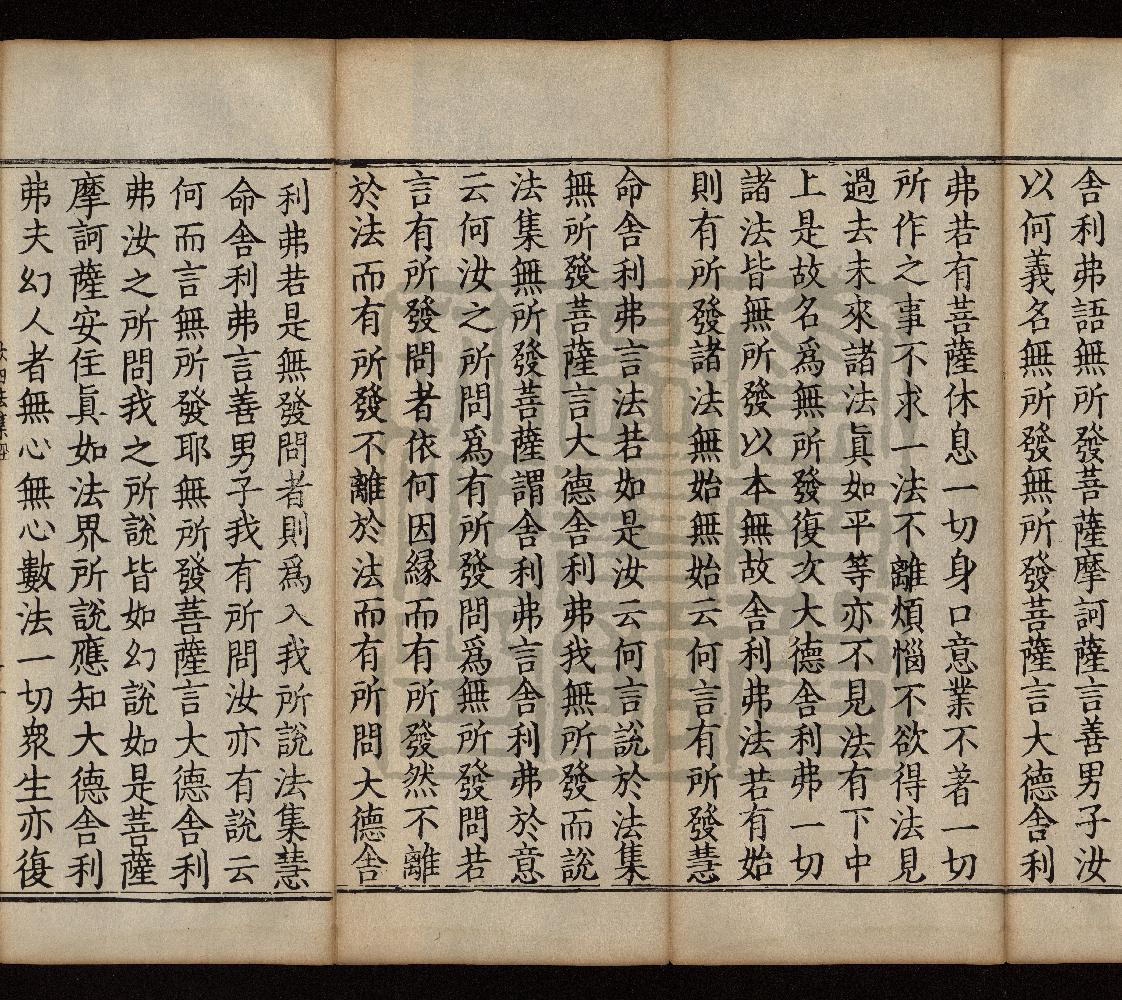 舎利弗語無所發菩薩摩訶薩言善男子汝
以何義名無所發無所發菩薩言大德舎利
弗若有菩薩休息一切身口意業不著一切
所作之事不求一法不離煩惱不欲得法見
過去未來諸法真如平等亦不見法有下中
上是故名為無所發復次大德舎利弗一切
諸法皆無所發以本無故舎利弗法若有始
則有所發諸法無始無始云何言有所發慧
命舎利弗言法若如是汝云何言說於法集
無所發菩薩言大德舎利弗我無所發而說
法集無所發菩薩謂舎利弗言舎利弗於意
云何汝之所問為有所發問為無所發問若
言有所發問者依何因縁而有所發然不離
於法而有所發不離於法而有所問大德舎
利弗若是無發問者則為入我所說法集慧
命舎利弗言善男子我有所問汝亦有說云
何而言無所發耶無所發菩薩言大德舎利
弗汝之所問我之所說皆如幻說如是菩薩
摩訶薩安住真如法界所說應知大德舎利
弗夫幻人者無心無心數法一切衆生亦復